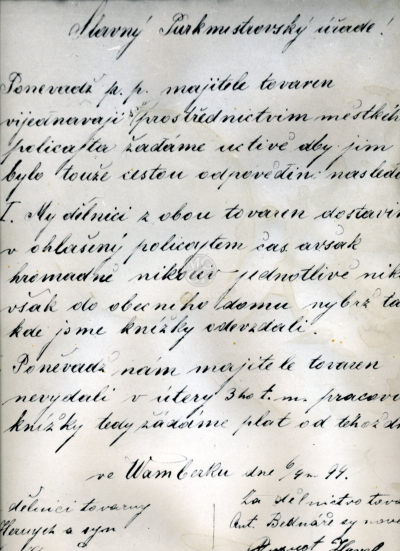 Slavný Purkmistrovský úřade!
Poněvadž p. p. majitele tovaren
vijednavají prostřednictvim městkéh
policajta žadáme uctivě aby jim
bylo touže cestou odpovědin: nasledo
I. My dělnici z obou tovaren dostavim
v ohlašený policajtem čas avšak
hromadně nikoliv jednotlivě nik
však do obecního domu nybrž ta
kde jsme knížky odevzdali.
Poněvadž nám majitele tovaren
nevydali v útery 3ho t. m. pracovn
knížky tedy žádáme plat od tehož dn
ve Wamberku dne 99.
dělnici tovarny
Za dělnictvo tova
a syn
Ant. Bednáře synové